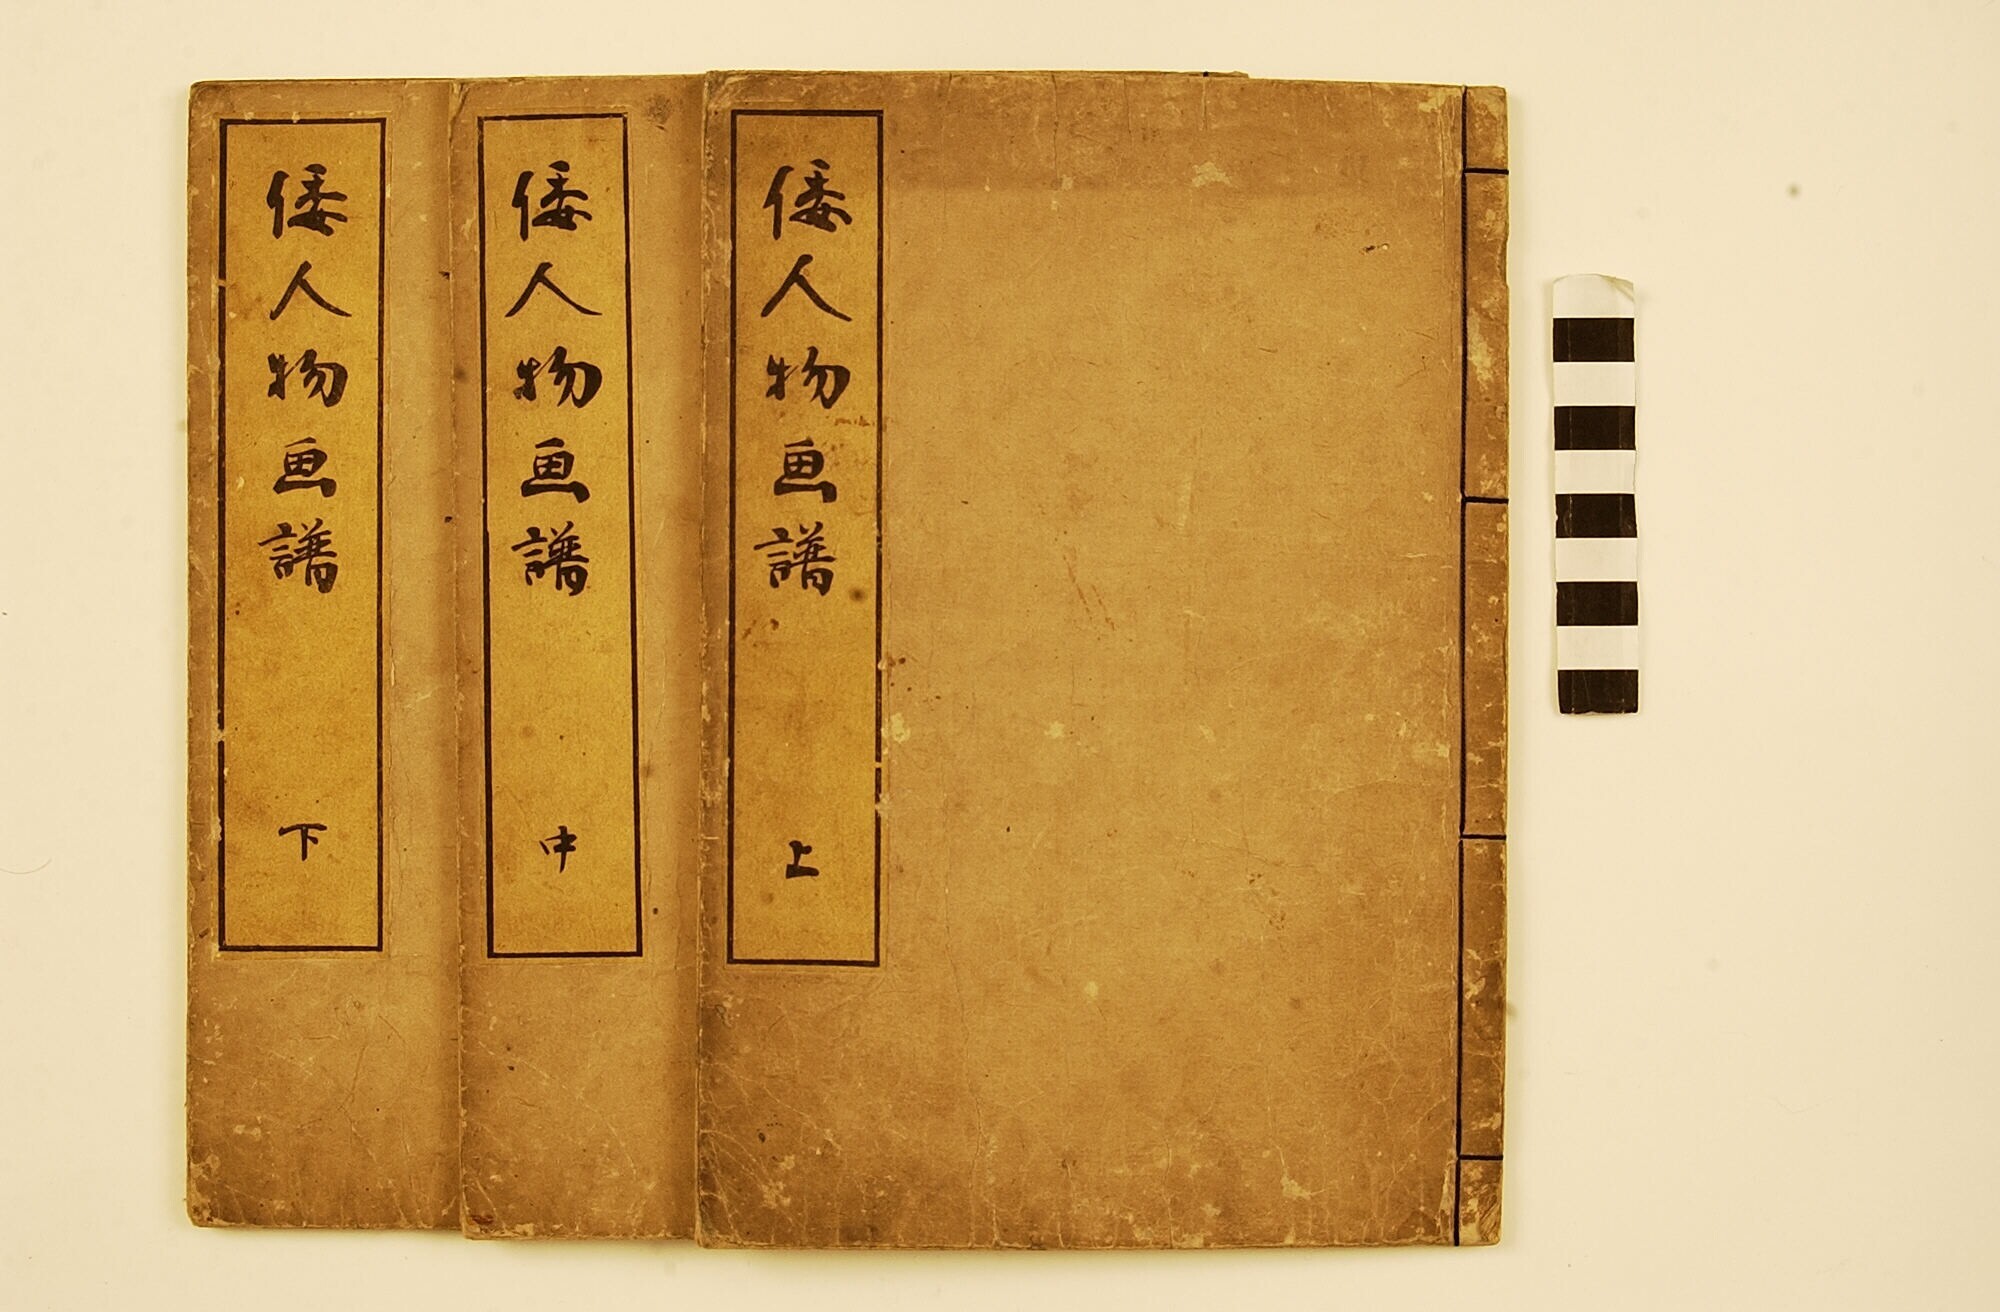 倭人物画譜
上
倭人物画譜
中
倭人物画譜
下